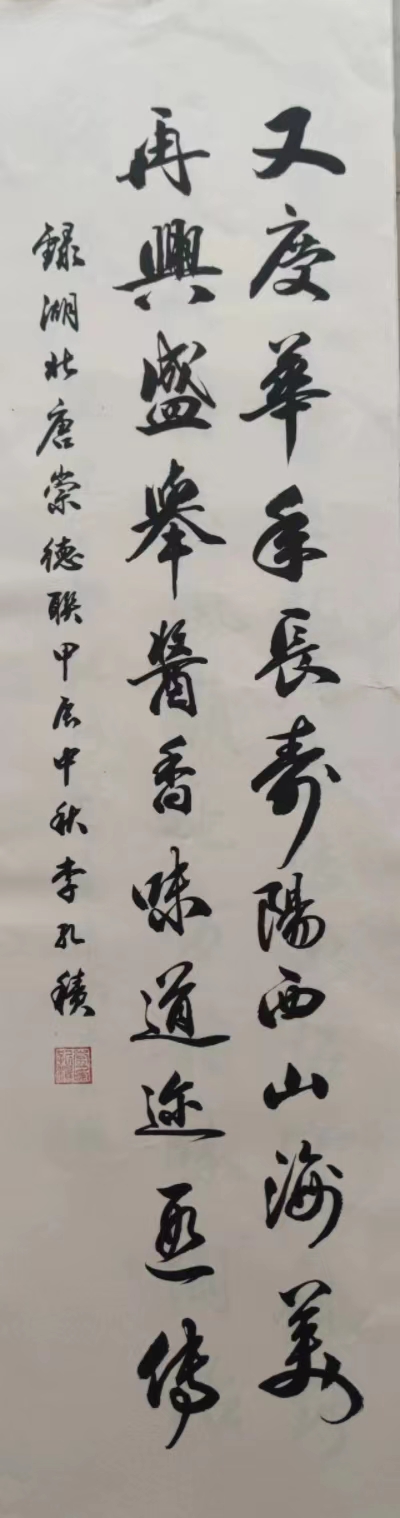 又度華年長壽陽西山海美
再興盛舉醬香味道迩遐傳
録湖北唐崇德联甲辰中秋李孔積